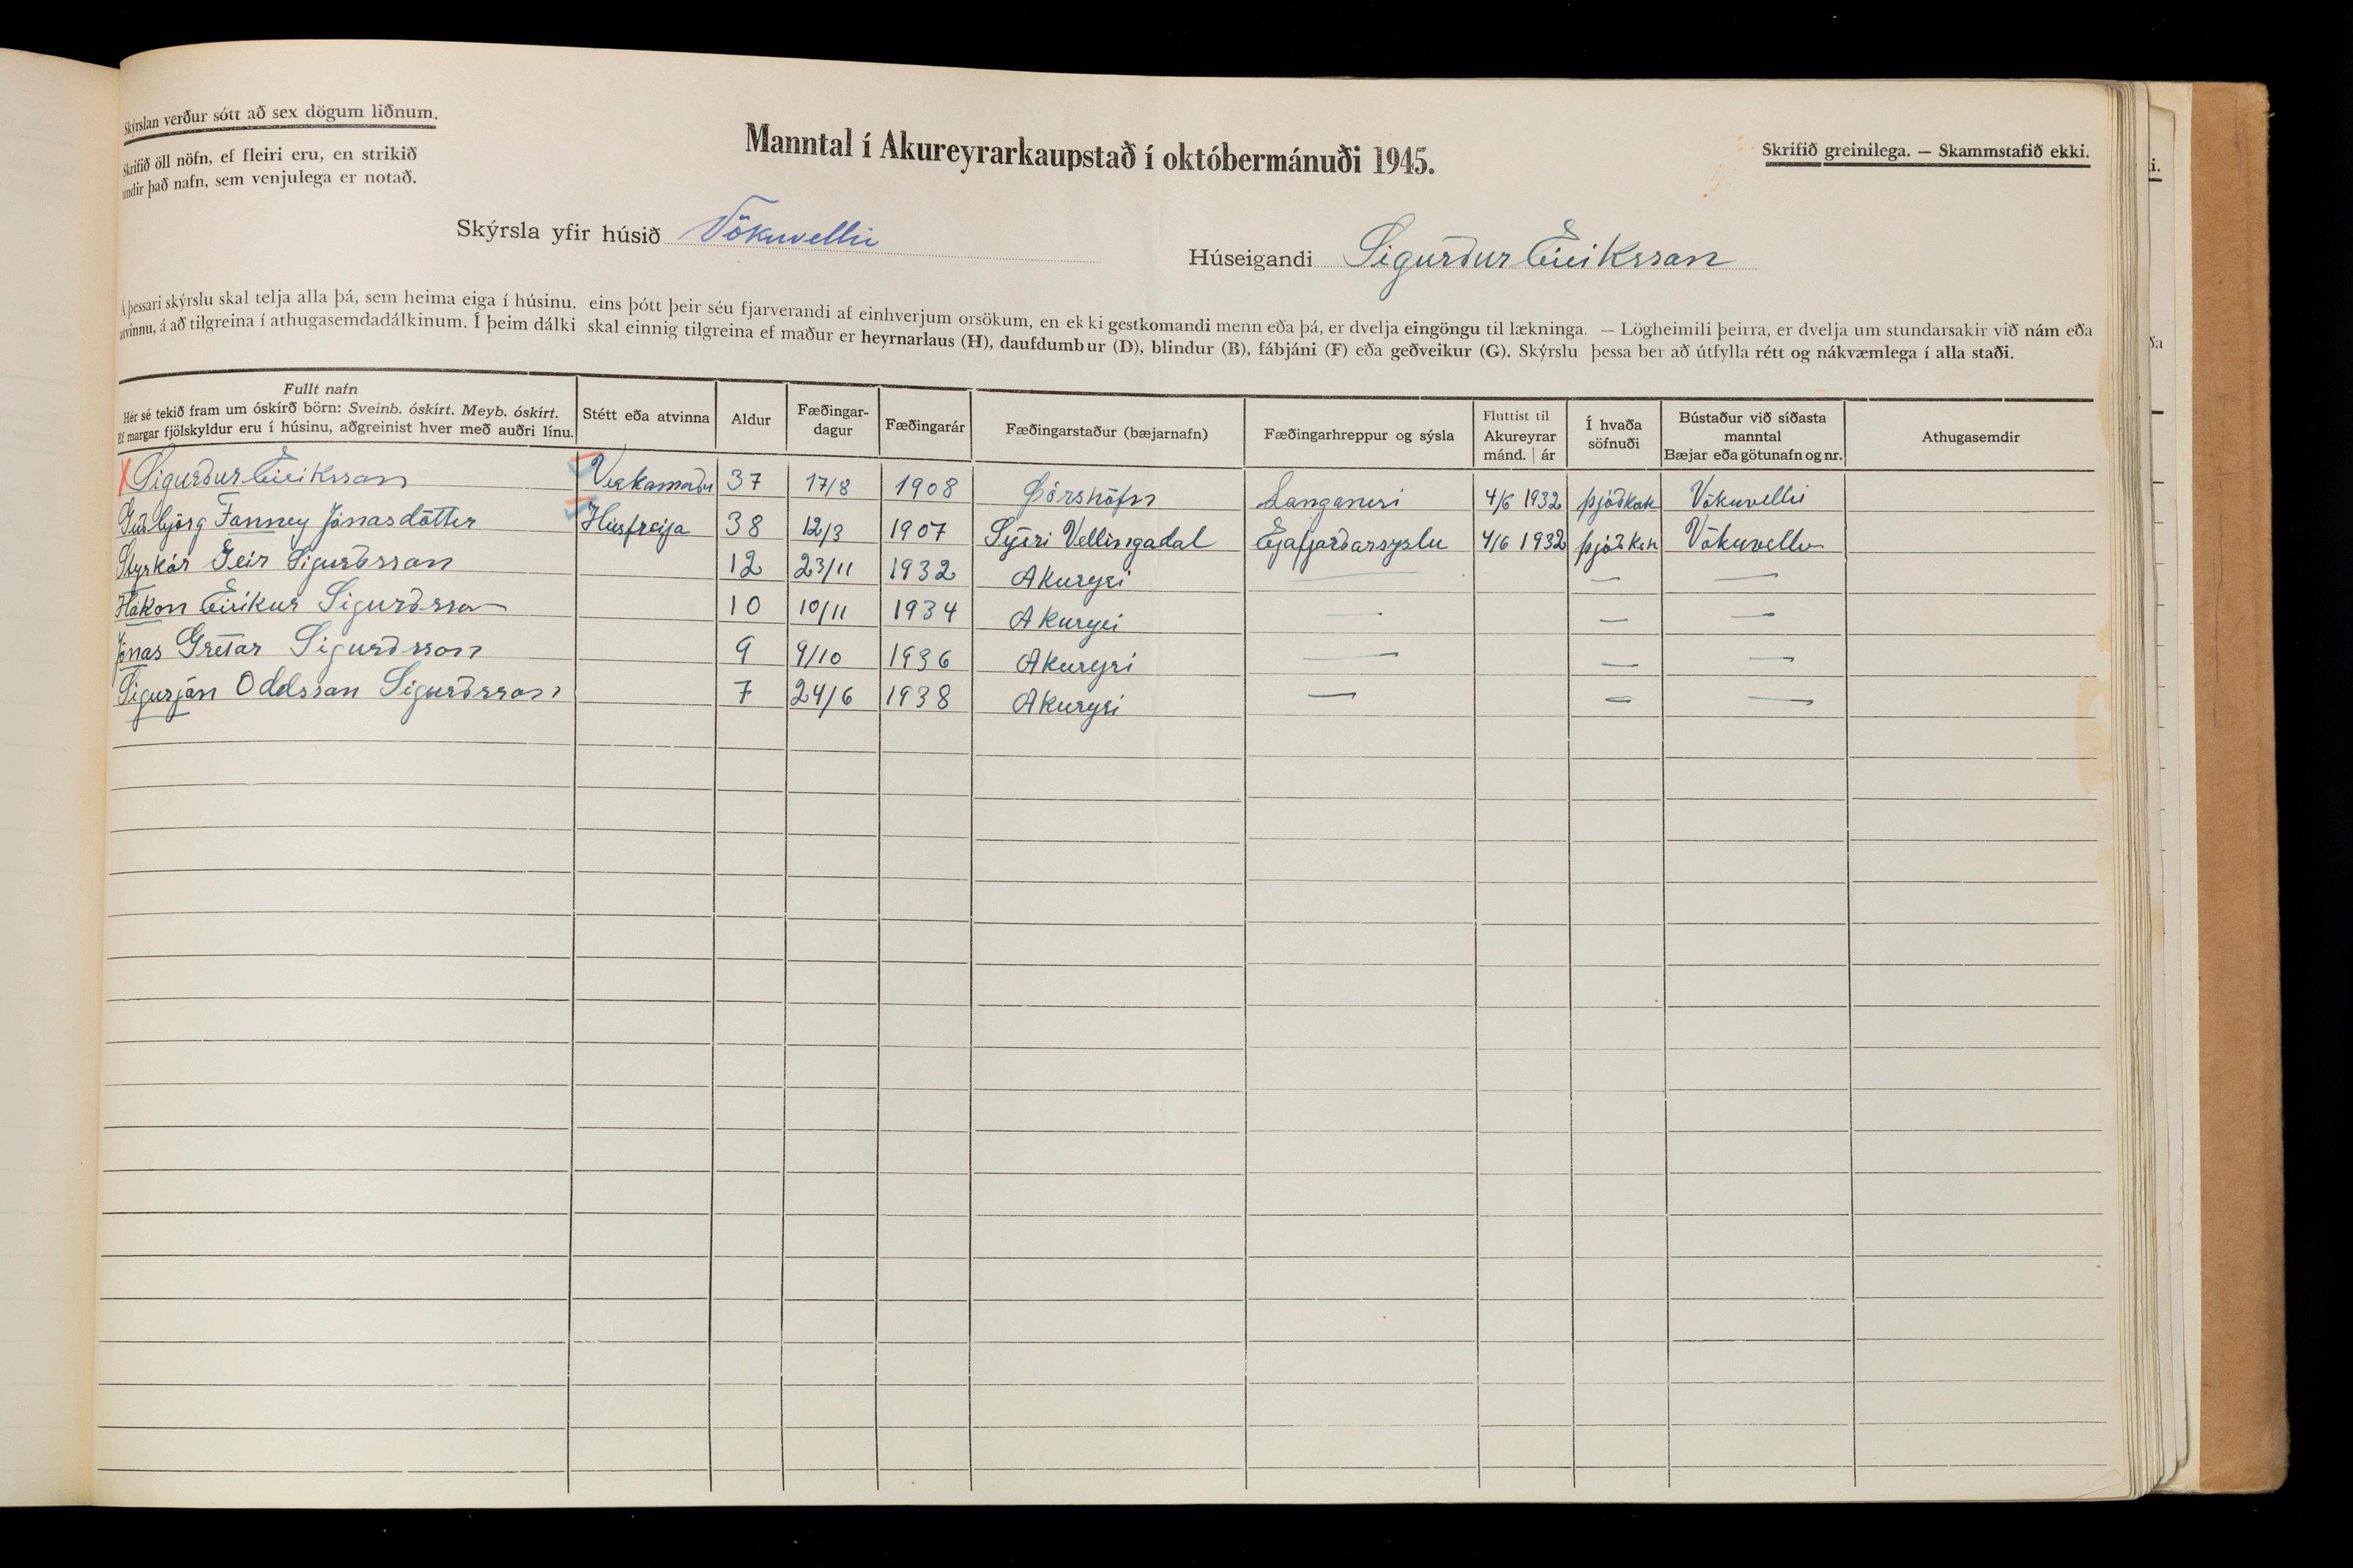 Skýrslan verður sótt að sex dögum liðnum.
Skrifið öll nöfn, ef fleiri eru, en strikið
undir það nafn, sem venjulega er notað.
Manntal í Akureyrarkaupstað í októbermánuði 1945.
Skrifið greinilega. — Skammstafið ekki.
Skýrsla yfir húsið Vökuvellir
Húseigandi Sigurður Eiriksson
Á þessari skýrslu skal telja alla þá, sem heima eiga í húsinu, eins þótt þeir séu fjarverandi af einhverjum orsökum, en ekki gestkomandi menn eða þá, er dvelja eingöngu til lækninga. — Lögheimili þeirra, er dvelja um stundarsakir við nám eða
atvinnu, á að tilgreina í athugasemdadálkinum. Í þeim dálki skal einnig tilgreina ef maður er heyrnarlaus (H), daufdumbur (D), blindur (B), fábjáni (F) eða geðveikur (G). Skýrslu þessa ber að útfylla rétt og nákvæmlega í alla staði.
Fullt nafn
Hér sé tekið fram um óskírð börn: Sveinb. óskírt. Meyb. óskírt.
Ef margar fjölskyldur eru í húsinu, aðgreinist hver með auðri línu.
Stétt eða atvinna
Aldur
Fæðingar-
dagur
Fæðingarár
Fæðingarstaður (bæjarnafn)
Fæðingarhreppur og sýsla
Fluttist til
Akureyrar
mánd. | ár
Í hvaða
söfnuði
Bústaður við síðasta
manntal
Bæjar eða götunafn og nr.
Athugasemdir
X Sigurður Eiriksson Verkamaður 37 17/8 1908 Þórshöfn Langanesi 4/6 1932 þjóðkirk Vökuvellir
Guðbjörg Fanney Jónasdóttir Húsfreyja 38 12/3 1907 Syðri Vellingadal Eyafjarðarsyslu 4/6 1932 þjóðkirk Vökuvellir
Styrkár Geir Sigurðsson 12 23/11 1932 Akureyri — — —
Hákon Eiríkur Sigurðsson 10 10/11 1934 Akureyri — — —
Jónas Grétar Sigurðsson 9 9/10 1936 Akureyri — — —
Sigurjón Oddsson Sigurðsson 7 24/6 1938 Akureyri — — —